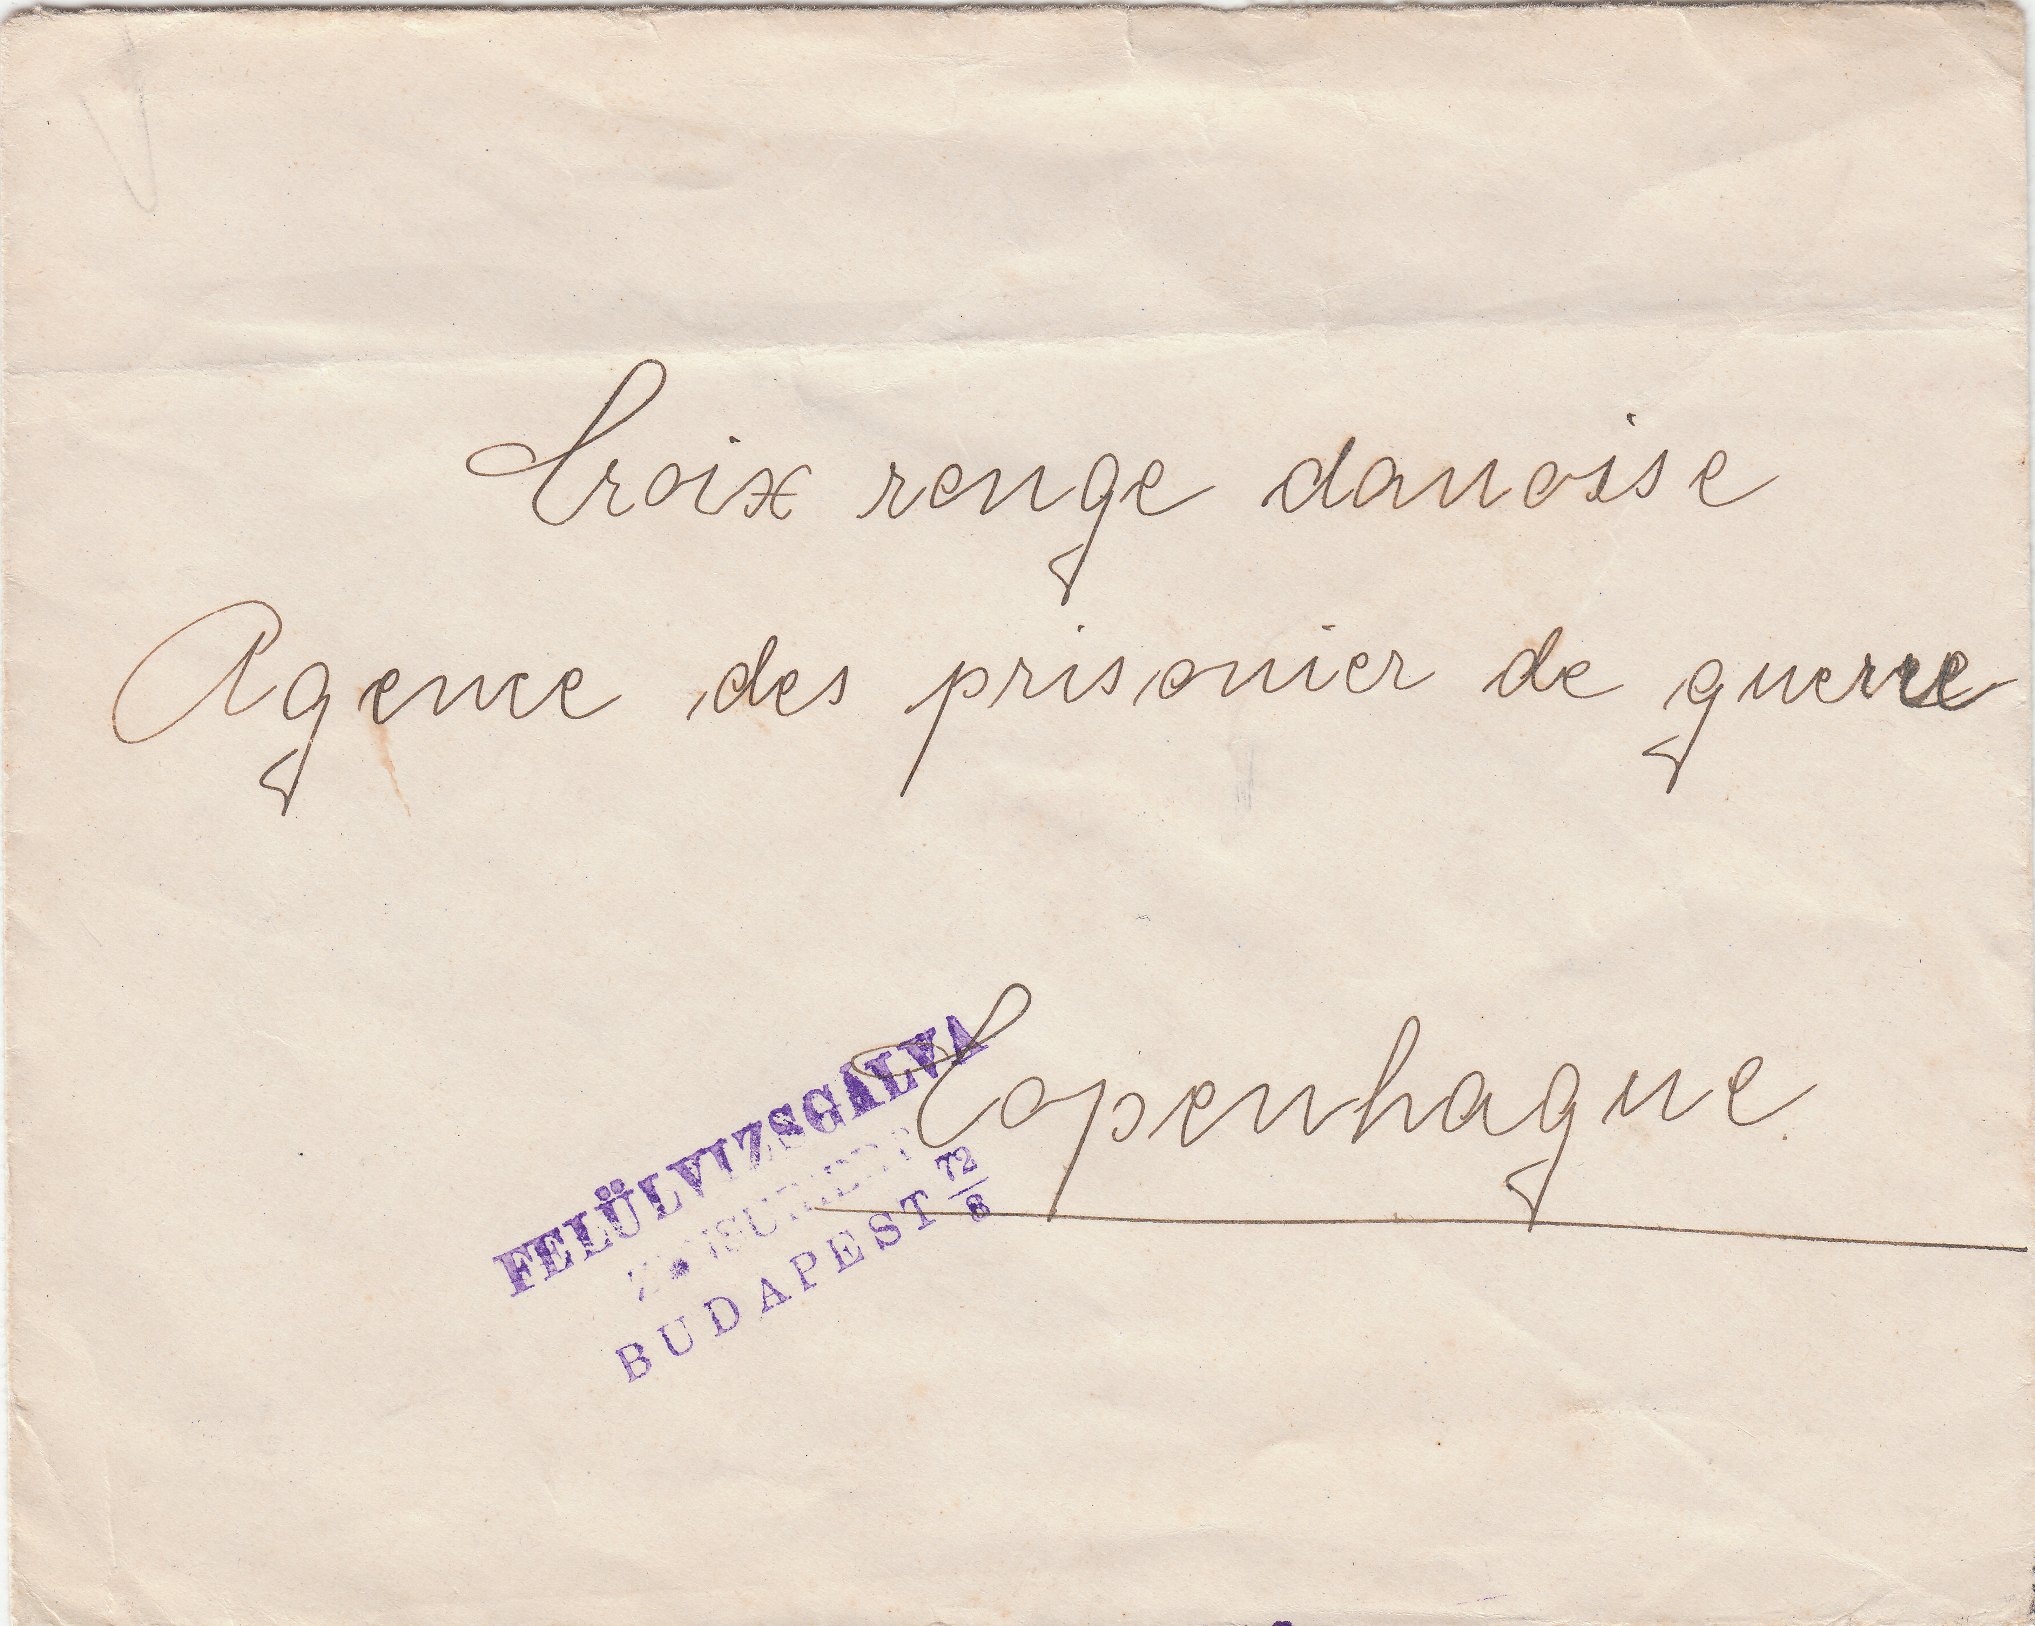 Croix rouge danoise
Agence des prisonier de guerre
Copenhague
FELÜLVIZSGÁLVA
ZENSURIERT
BUDAPEST 72/8